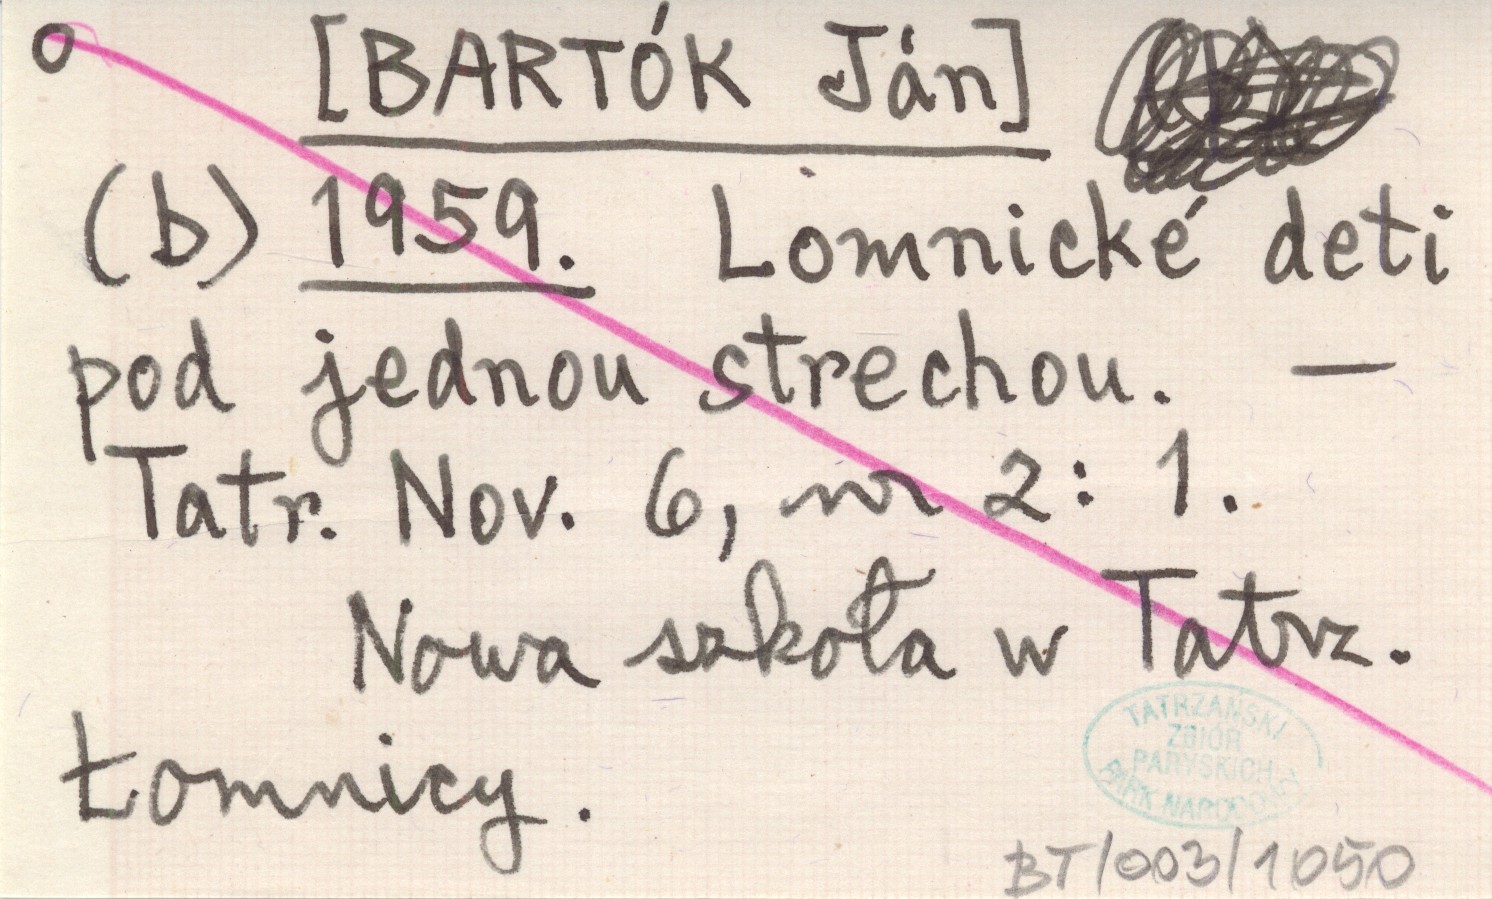 [BARTÓK Ján]
(b) 1959. Lomnické deti
pod jednou strechou. —
Tatr. Nov. 6, nr 2: 1.
Nowa szkoła w Tatrz.
Łomnicy.
TATRZAŃSKI
ZBIÓR
PARYSKICH
PARK NARODOWY
BT/003/1050